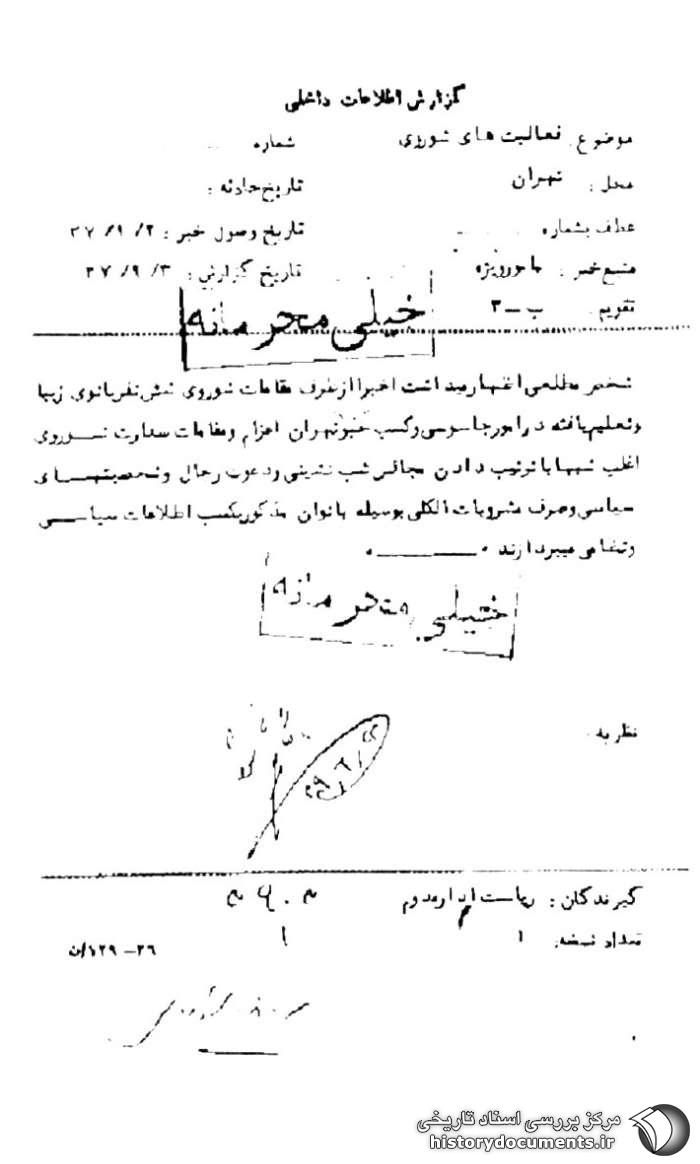 گزارش اطلاعات داخلی
موضوع: فعالیت های شوروی
شماره
محل: تهران
تاریخ حادثه:
عطف بشماره
تاریخ وصول خبر: ۳۷/۹/۲
منبع خبر: مامور ویژه
تاریخ گزارش: ۳۷/۹/۳
تقویم: ب ـ ۳
خیلی محرمانه
شخص مطلعی اظهار میداشت اخیرا از طرف مقامات شوروی شش نفر بانوی زیبا
وتعلیم یافته در امور جاسوسی وکسب خبر بتهران اعزام ومقامات سفارت شـوروی
اغلب شبها با ترتیب دادن مجالس شب نشینی ودعوت رجال وشخصیتهـای
سیاسی وصرف مشروبات الکلی بوسیله بانوان مذکور بکسب اطلاعات سیاسـی
ونظامی میپردازند.
خیلی محرمانه
نظریه
گیرندگان: ریاست اداره دوم
تعداد نسخه: ۱
۱
۲۶-۱۲۹/ن
مرکز بررسی اسناد تاریخی
historydocuments.ir